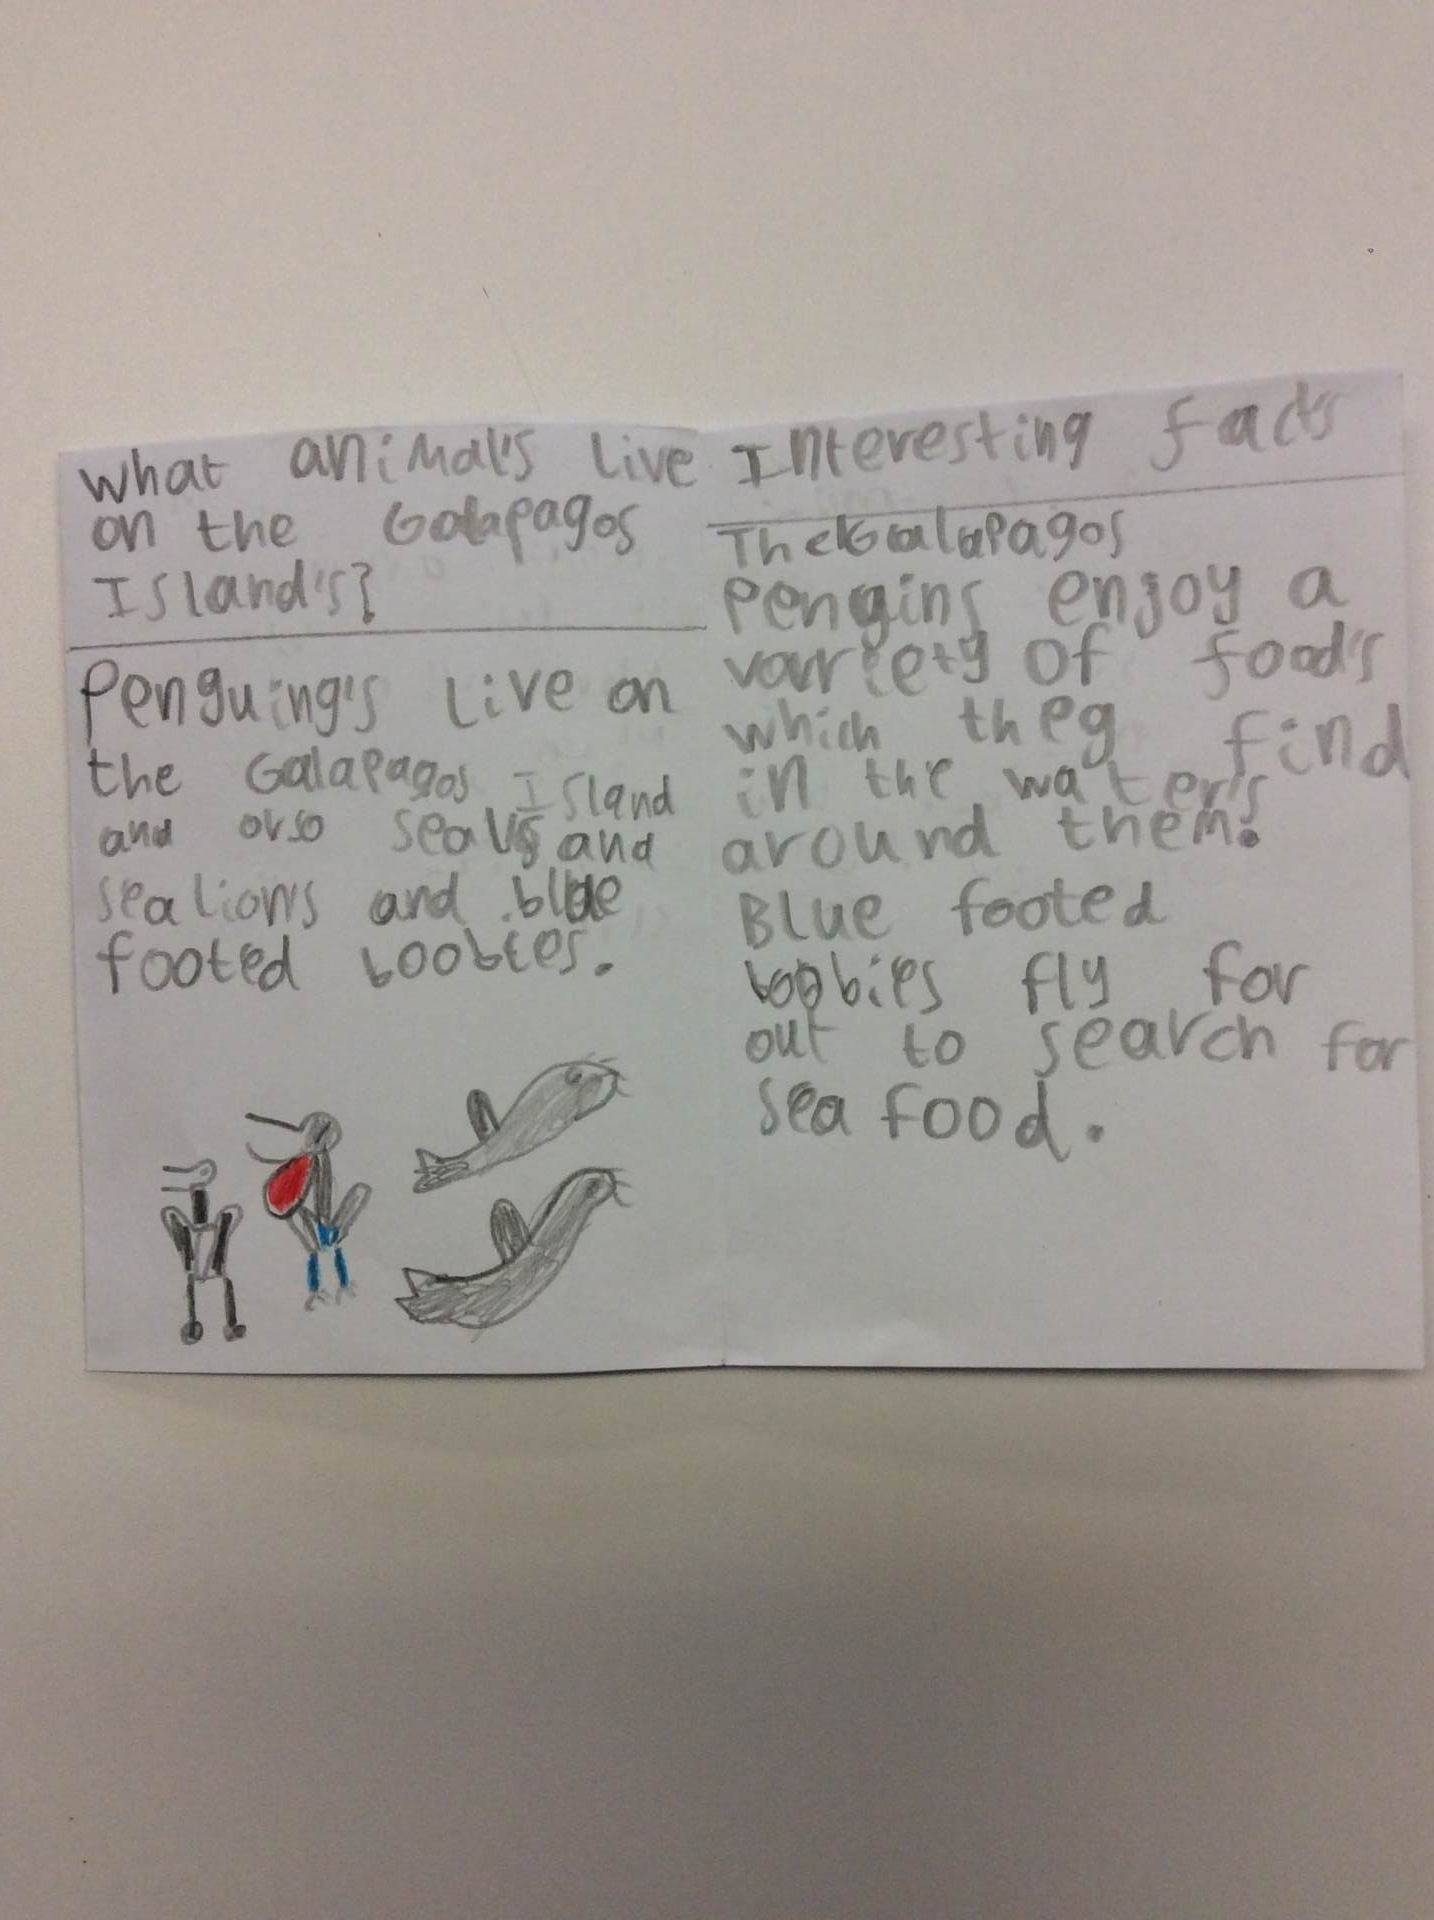 What animal's live
on the Galapagos
Island's?
Penguing's live on
the Galapagos Island
and orso seals and
sea lion's and blue
footed boobies.
Interesting facts
The Galapagos
Pengins enjoy a
variety of food's
which they find
in the water's
around them.
Blue footed
boobies fly for
out to search for
sea food.